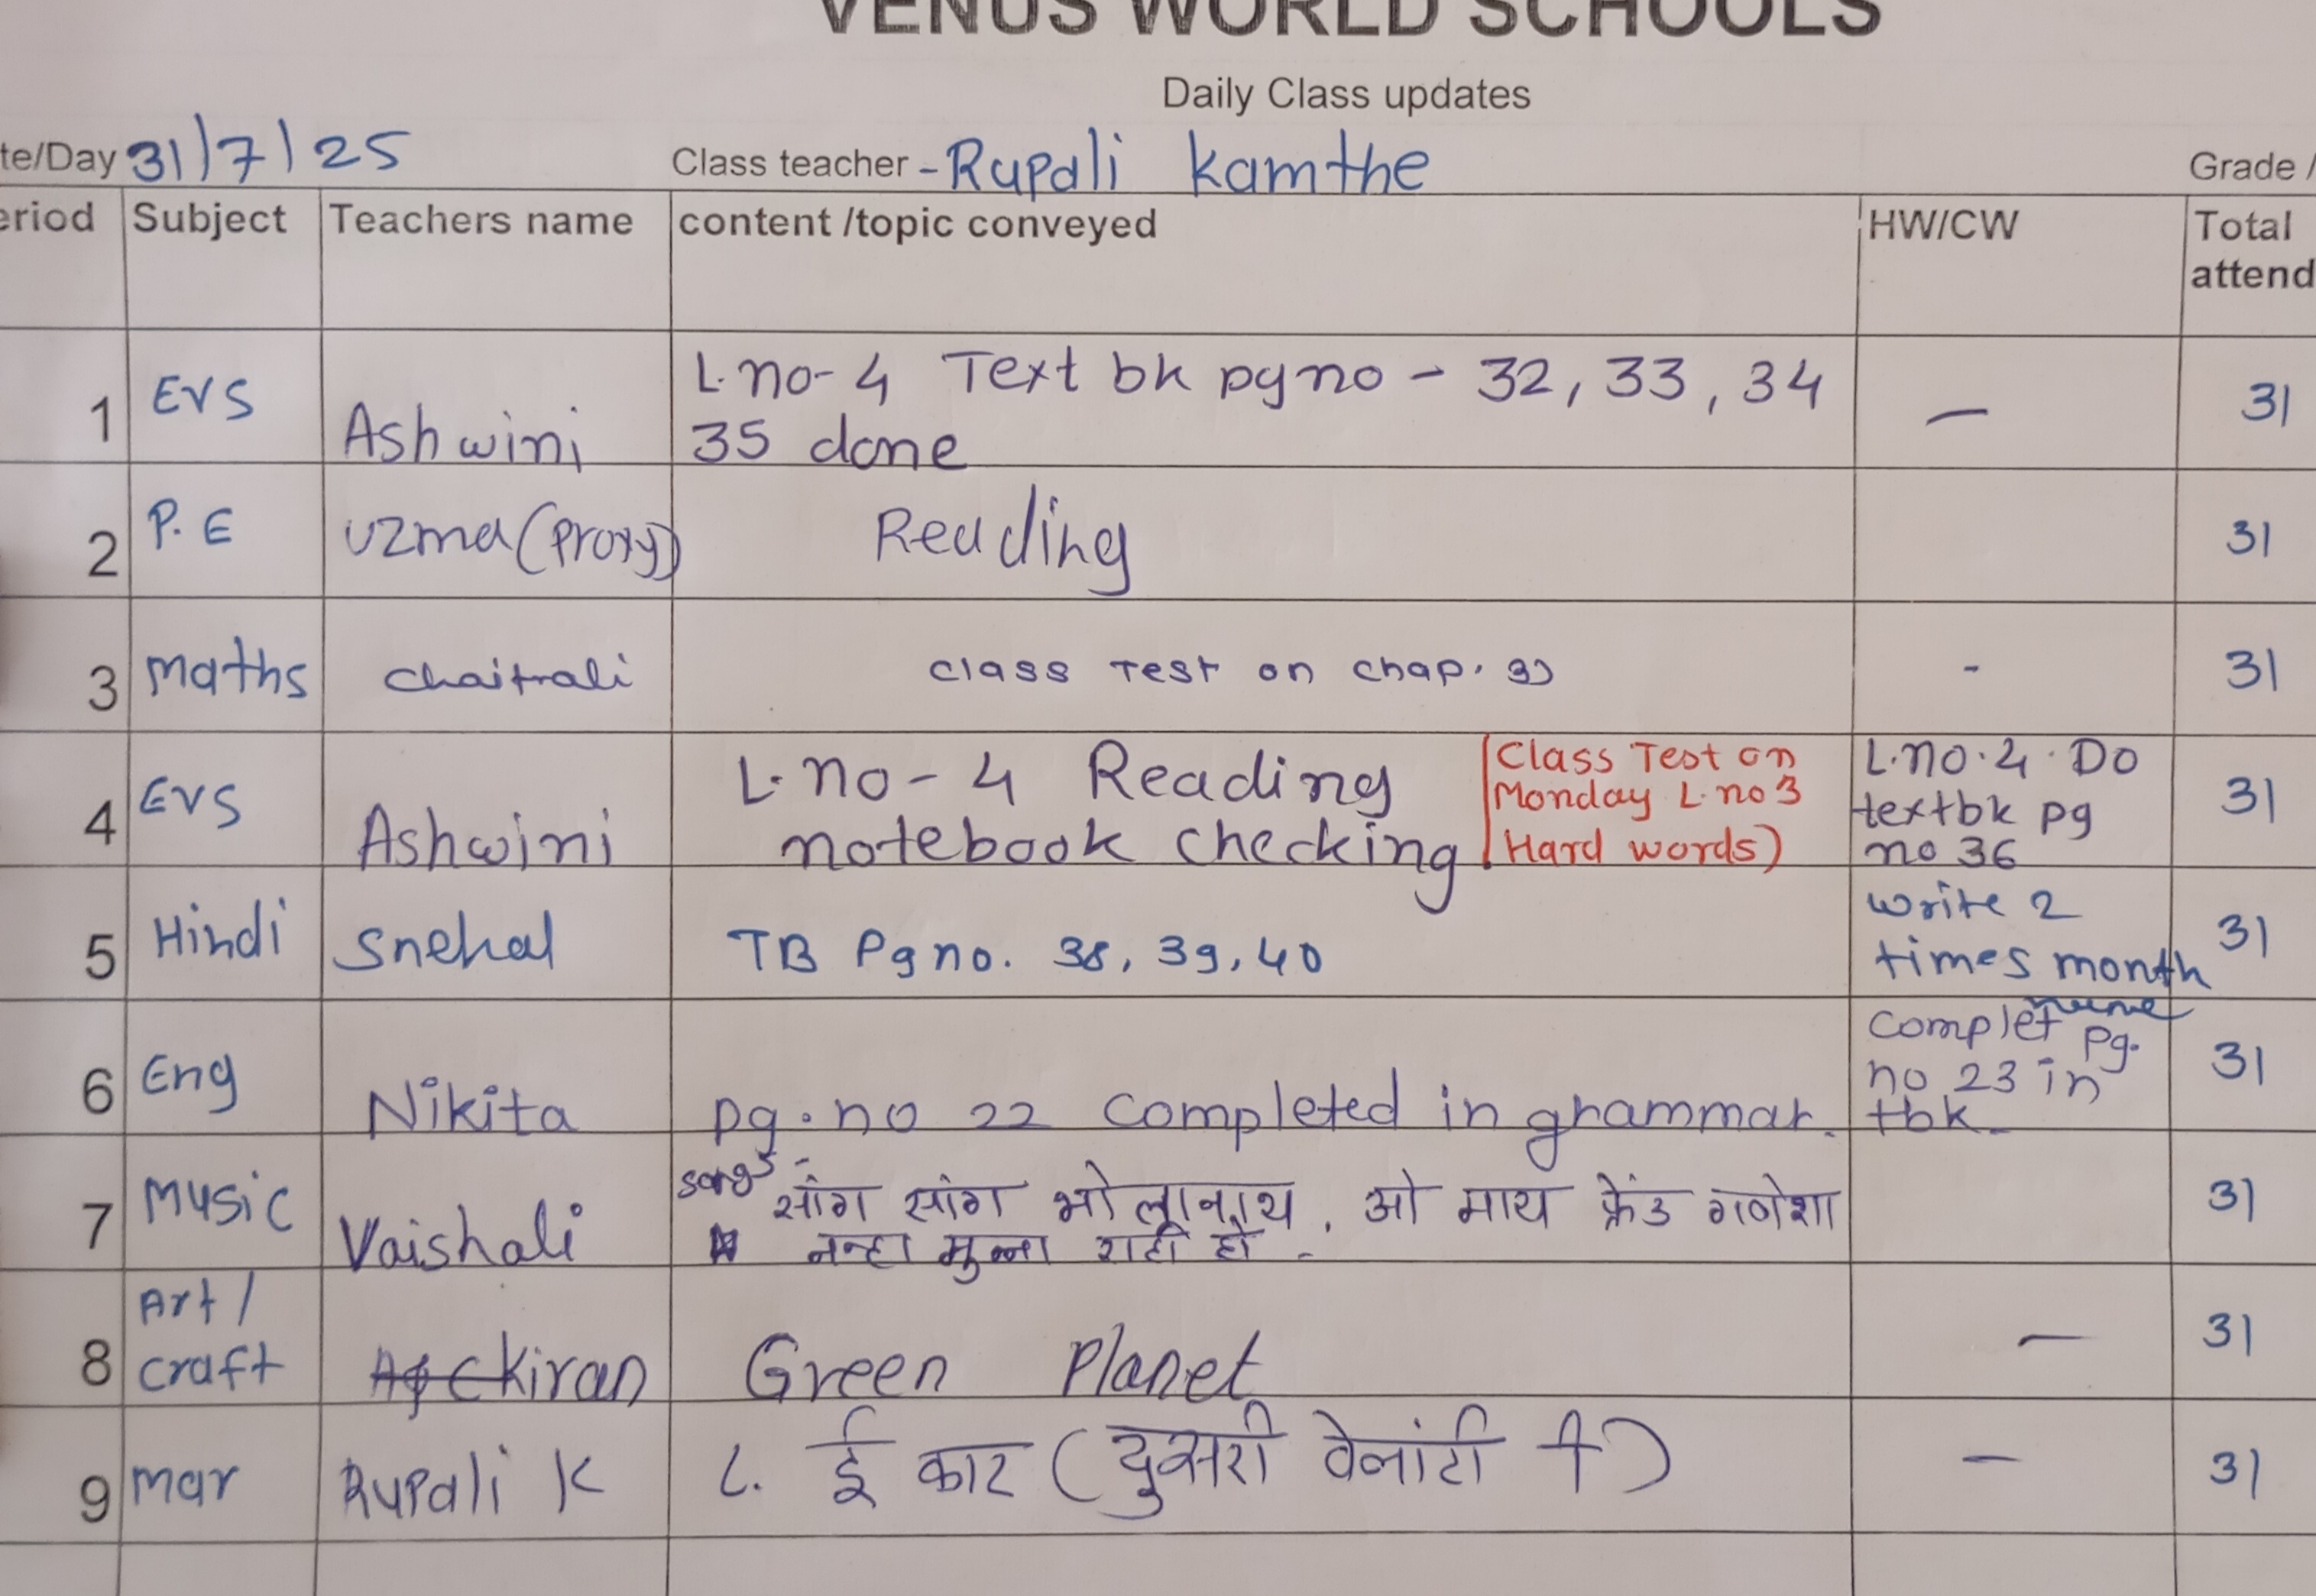 VENUS WORLD SCHOOLS
Daily Class updates
te/Day 31/7/25 Class teacher - Rupali Kamthe Grade /
eriod Subject Teachers name content /topic conveyed HW/CW Total
attend
1 EVS Ashwini L.no-4 Text bk pg no - 32, 33, 34 — 31
35 done
2 P.E Uzma (Proxy) Reading 31
3 Maths Chaitrali class Test on chap. - 31
4 EVS Ashwini L.no-4 Reading Class Test on L.no.4. Do 31
notebook checking Monday L.no 3 textbk pg
Hard words) no 36
5 Hindi Snehal TB Pg no. 38, 39, 40 write 2 31
times month
6 Eng Nikita pg.no 22 completed in grammar. complet pg. 31
no 23 in
tbk
7 Music Vaishali songs - सांग सांग भोलानाथ, ओ माय फ्रेंड गणेशा 31
नन्हा मुन्ना राही हो -
8 Art/ Kiran Green Planet — 31
craft
9 Mar Rupali K ८. ई कार (दुसरी वेलांटी ी) — 31